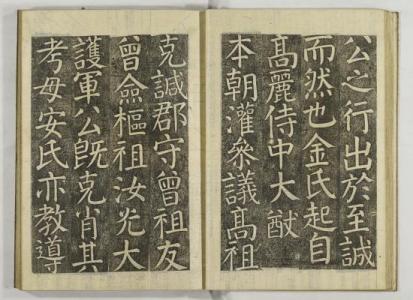 公之行出於至誠
而然也金氏起自
高麗侍中大猷
本朝灌叅議高祖
克誠郡守曾祖友
曾僉樞祖汝光大
護軍公旣克肖其
考母安氏亦教導